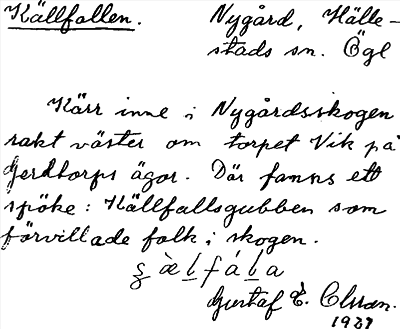 Källfallen. Nygård, Hälle-
stads sn. Ögl
Kärr inne i Nygårdsskogen
rakt väster om torpet Vik på
Gerdtorps ägor. Där fanns ett
spöke: Källfallsgubben som
förvillade folk i skogen.
Gustaf E. Olsson.
1931